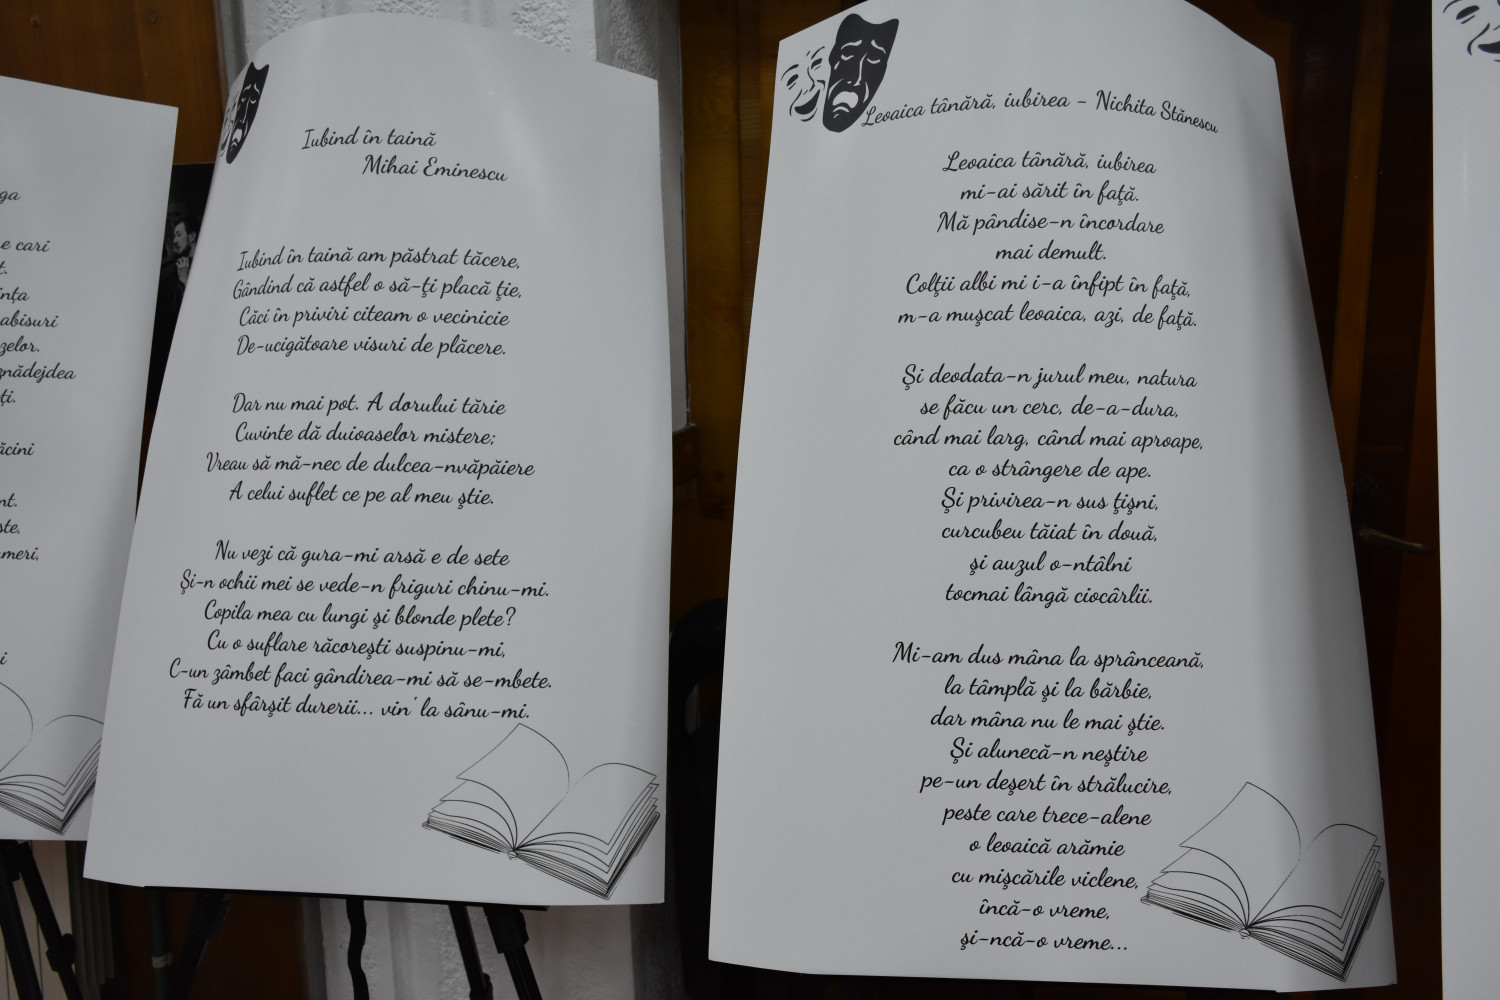 ga
e cari
t.
ința
abisuri
zelor.
znădejdea
ți.
ăcini
nt.
ste,
meri,
i
Iubind în taină
Mihai Eminescu
Iubind în taină am păstrat tăcere,
Gândind că astfel o să-ţi placă ţie,
Căci în priviri citeam o vecinicie
De-ucigătoare visuri de plăcere.
Dar nu mai pot. A dorului tărie
Cuvinte dă duioaselor mistere;
Vreau să mă-nec de dulcea-nvăpăiere
A celui suflet ce pe al meu ştie.
Nu vezi că gura-mi arsă e de sete
Şi-n ochii mei se vede-n friguri chinu-mi.
Copila mea cu lungi şi blonde plete?
Cu o suflare răcoreşti suspinu-mi,
C-un zâmbet faci gândirea-mi să se-mbete.
Fă un sfârşit durerii... vin' la sânu-mi.
Leoaica tânără, iubirea - Nichita Stănescu
Leoaica tânără, iubirea
mi-ai sărit în faţă.
Mă pândise-n încordare
mai demult.
Colţii albi mi i-a înfipt în faţă,
m-a muşcat leoaica, azi, de faţă.
Şi deodata-n jurul meu, natura
se făcu un cerc, de-a-dura,
când mai larg, când mai aproape,
ca o strângere de ape.
Şi privirea-n sus ţişni,
curcubeu tăiat în două,
şi auzul o-ntâlni
tocmai lângă ciocârlii.
Mi-am dus mâna la sprânceană,
la tâmplă şi la bărbie,
dar mâna nu le mai ştie.
Şi alunecă-n neştire
pe-un deşert în strălucire,
peste care trece-alene
o leoaică arămie
cu mişcările viclene,
încă-o vreme,
şi-ncă-o vreme...